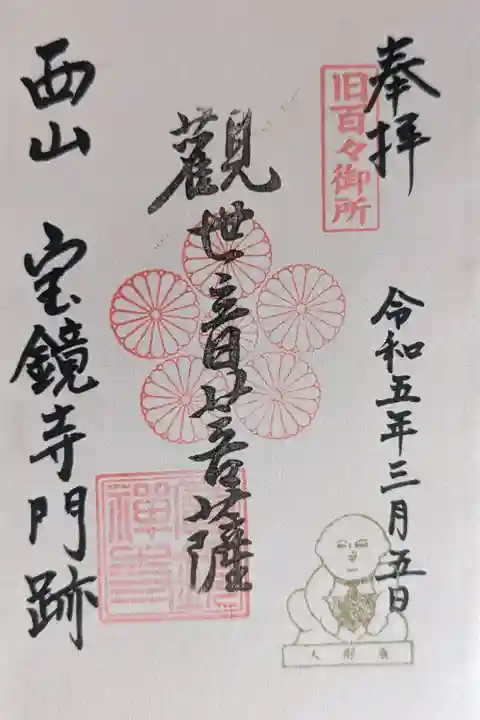 奉拝
旧百々御所
令和五年三月五日
觀世音菩薩
西山 宝鏡寺門跡
人形塚